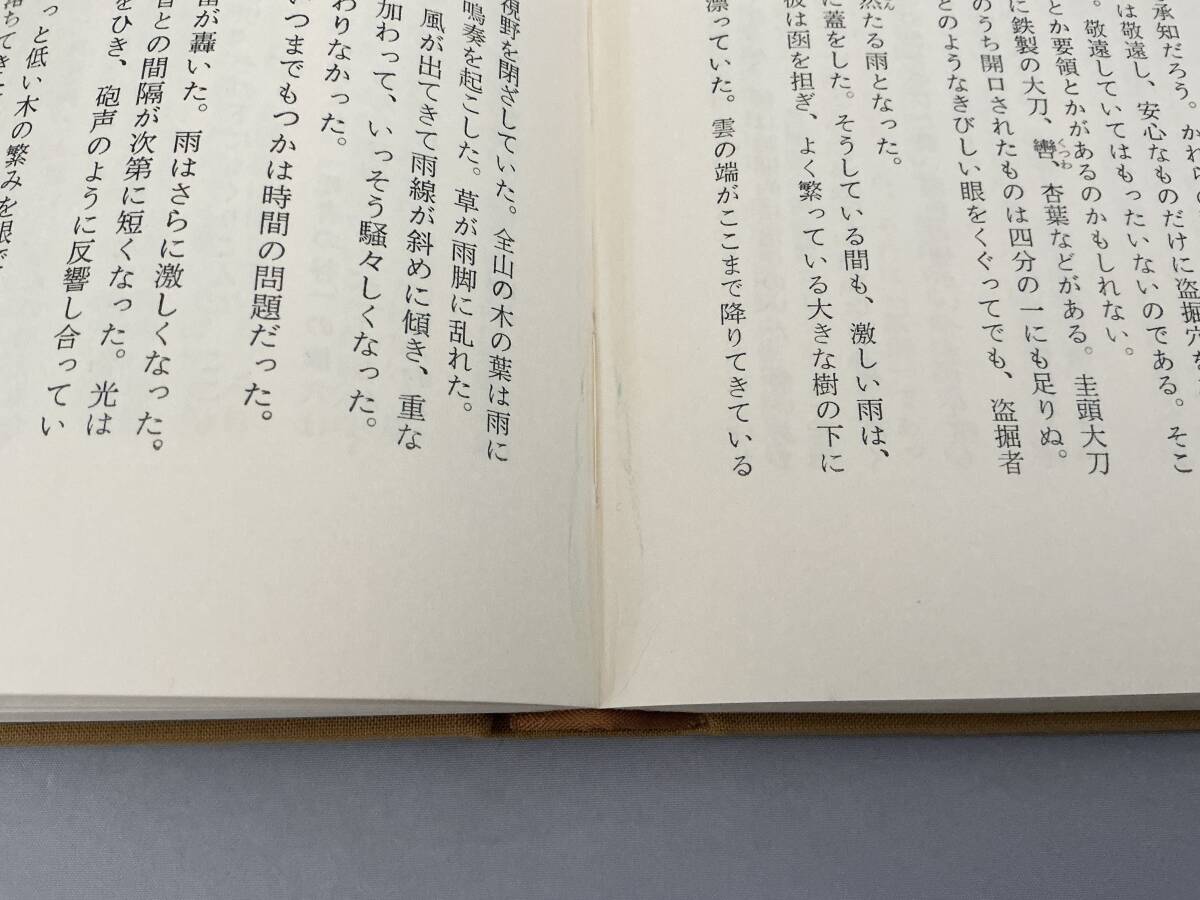 承知だろう。かれらの
は敬遠し、安心なものだけに盗掘穴を
。敬遠していてはもったいないのである。そこ
とか要領とかがあるのかもしれない。
に鉄製の大刀、轡、杏葉などがある。圭頭大刀
くつわ
のうち開口されたものは四分の一にも足りぬ。
とのようなきびしい眼をくぐってでも、盗掘者
然たる雨となった。
に蓋をした。そうしている間も、激しい雨は、
彼は函を担ぎ、よく繁っている大きな樹の下に
漂っていた。雲の端がここまで降りてきている
視野を閉ざしていた。全山の木の葉は雨に
鳴奏を起こした。草が雨脚に乱れた。
風が出てきて雨線が斜めに傾き、重な
加わって、いっそう騒々しくなった。
わりなかった。
いつまでもつかは時間の問題だった。
雷が轟いた。雨はさらに激しくなった。
音との間隔が次第に短くなった。光は
をひき、砲声のように反響し合ってい
っと低い木の繁みを眼で
落ちてきた